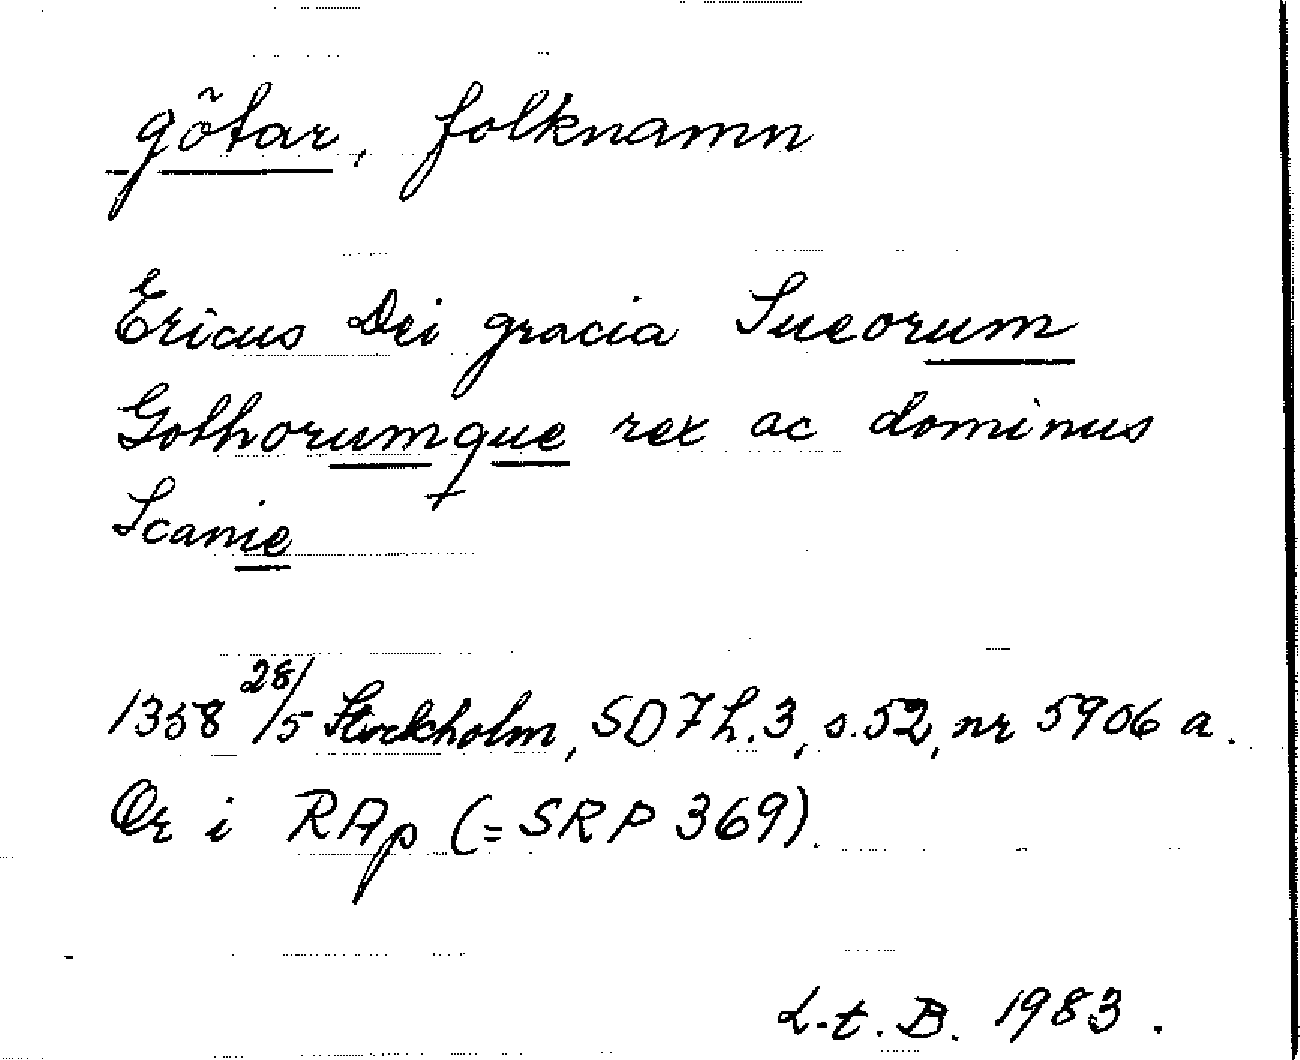 götar, folknamn
Ericus Dei gracia Sueorum
Gothorumque rex ac dominus
Scanie
1358 28/5 Stockholm, SD 7 h.3, s.52, nr 5906 a.
Or i RAp (= SRP 369).
L-t. B. 1983.